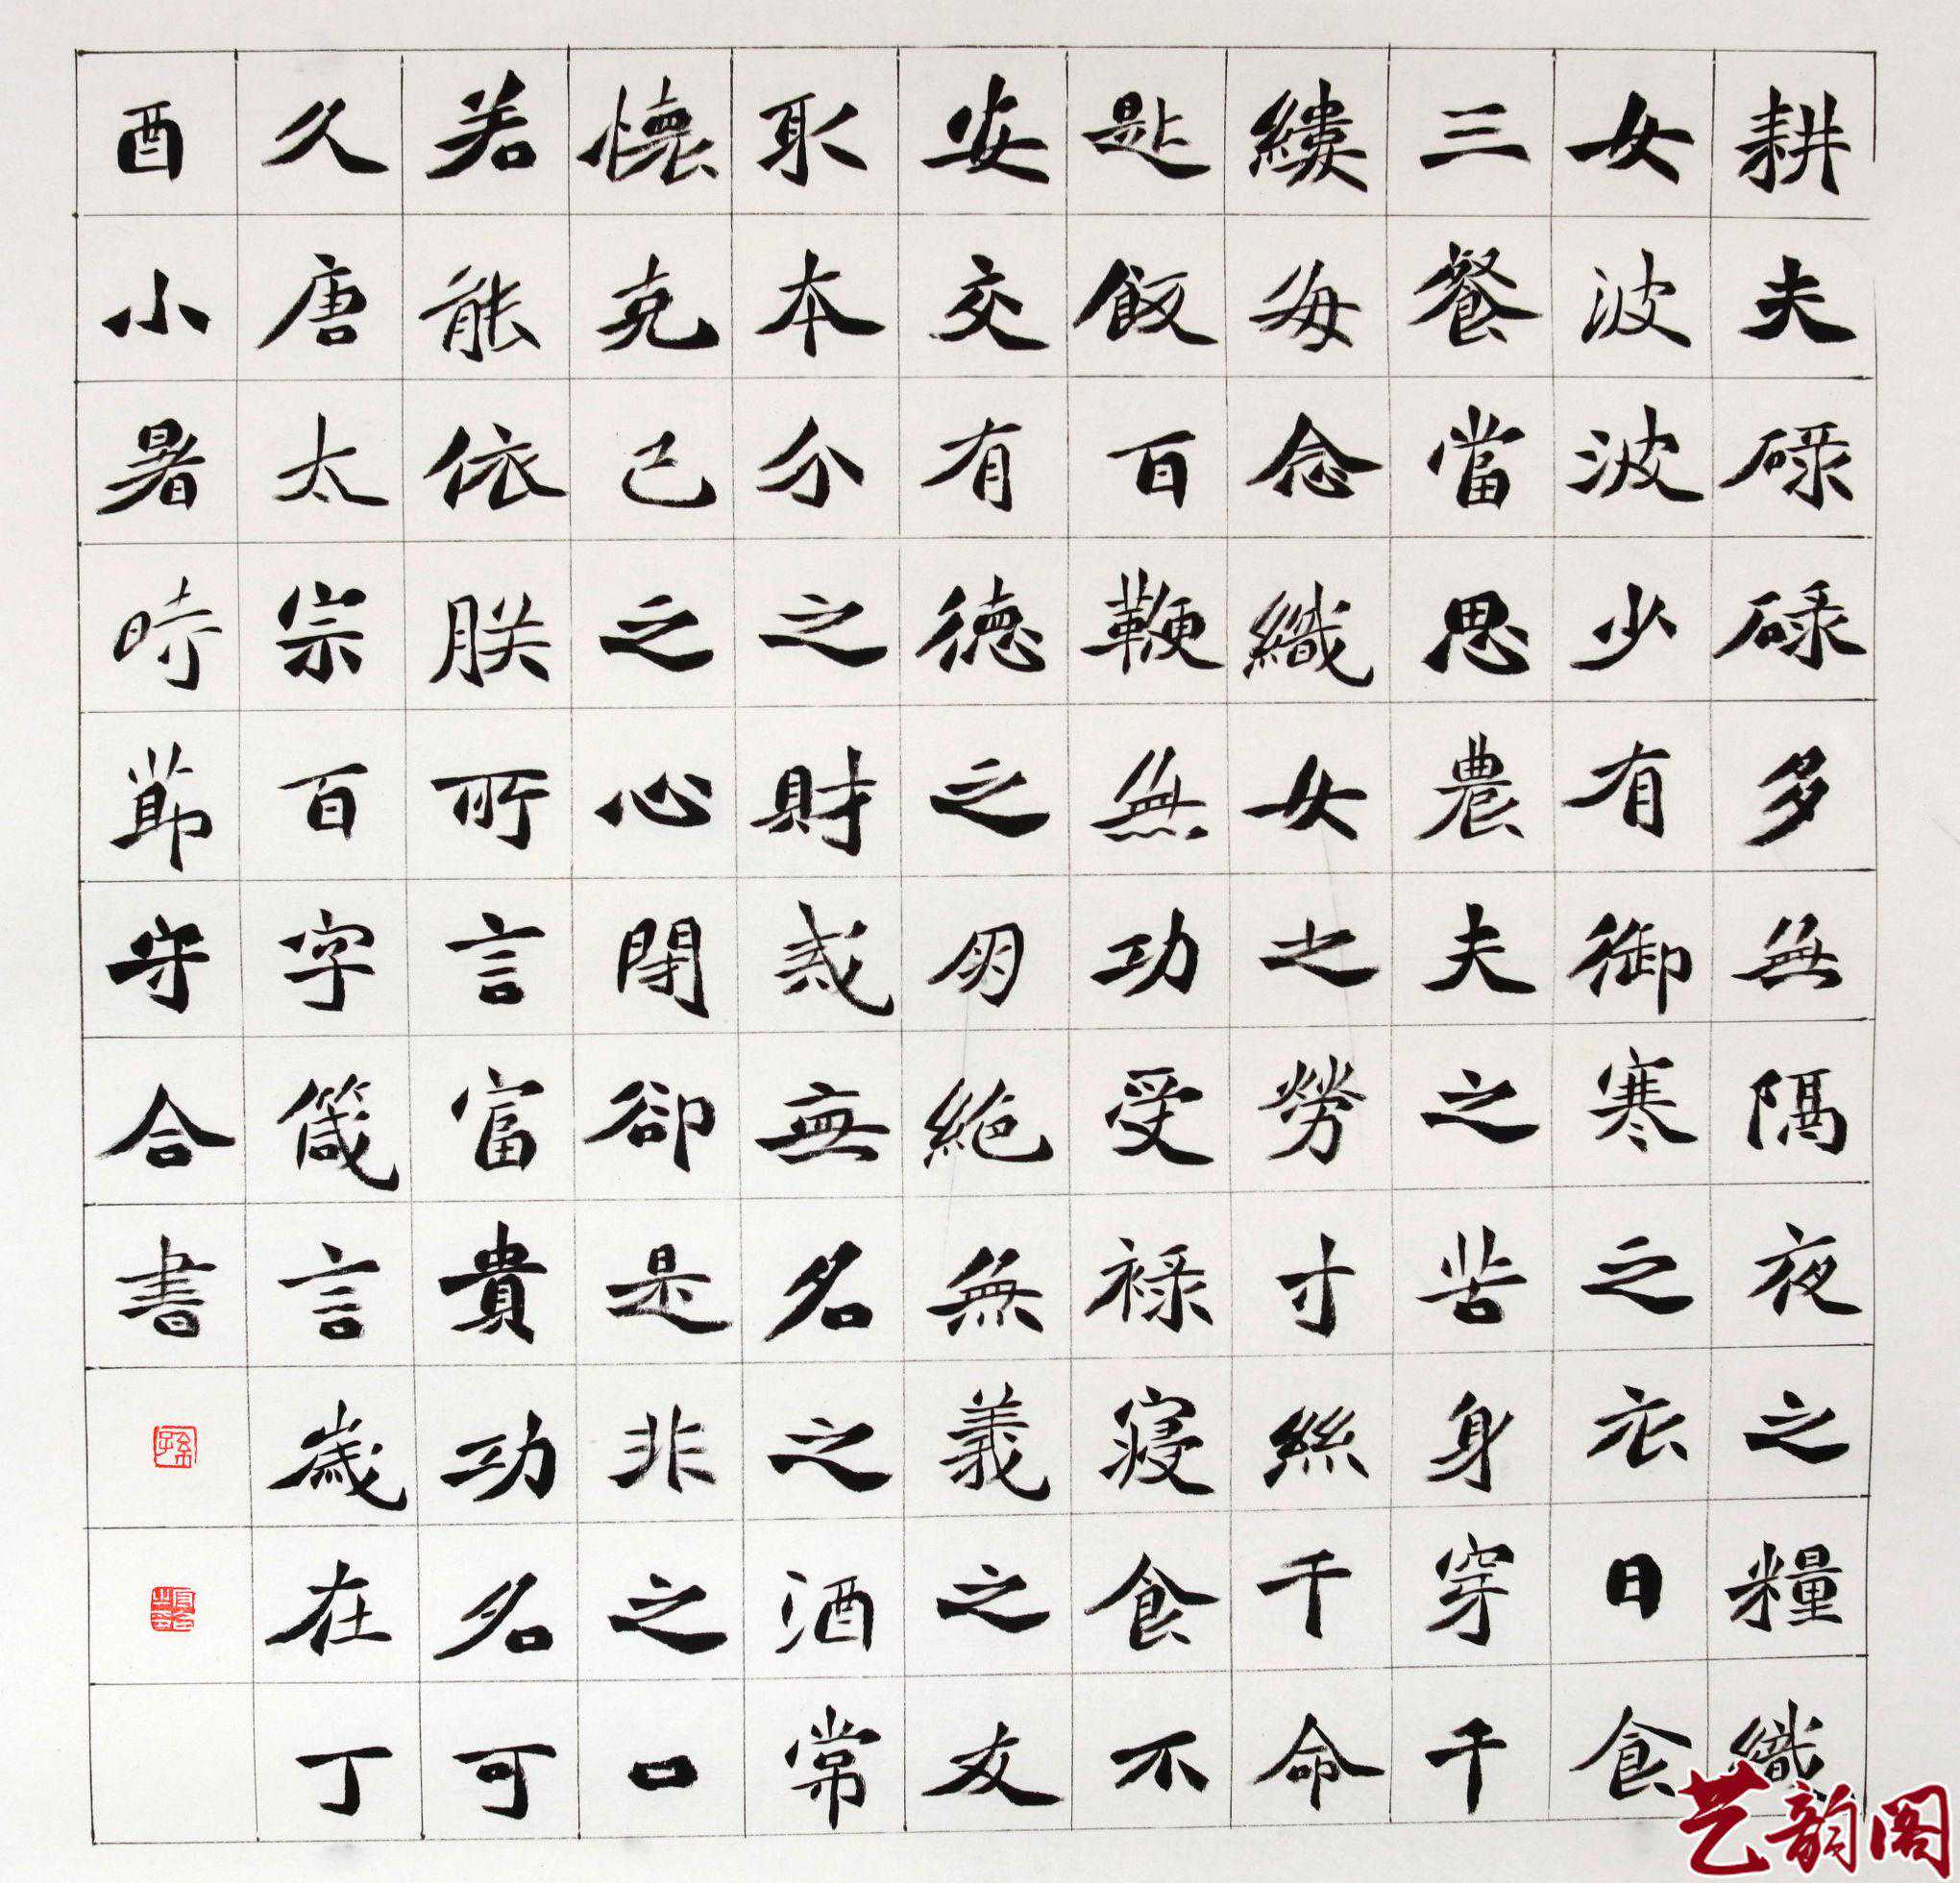 耕夫碌碌多無隔夜之糧織
女波波少有御寒之衣日食
三餐當思農夫之苦身穿千
縷每念織女之勞寸絲千命
匙飯百鞭無功受祿寢食不
安交有德之朋絕無義之友
取本分之財戒無名之酒常
懷克己之心閉卻是非之口
若能依朕所言富貴功名可
久唐太宗百字箴言歲在丁
酉小暑時節守合書
孫
艺韵阁